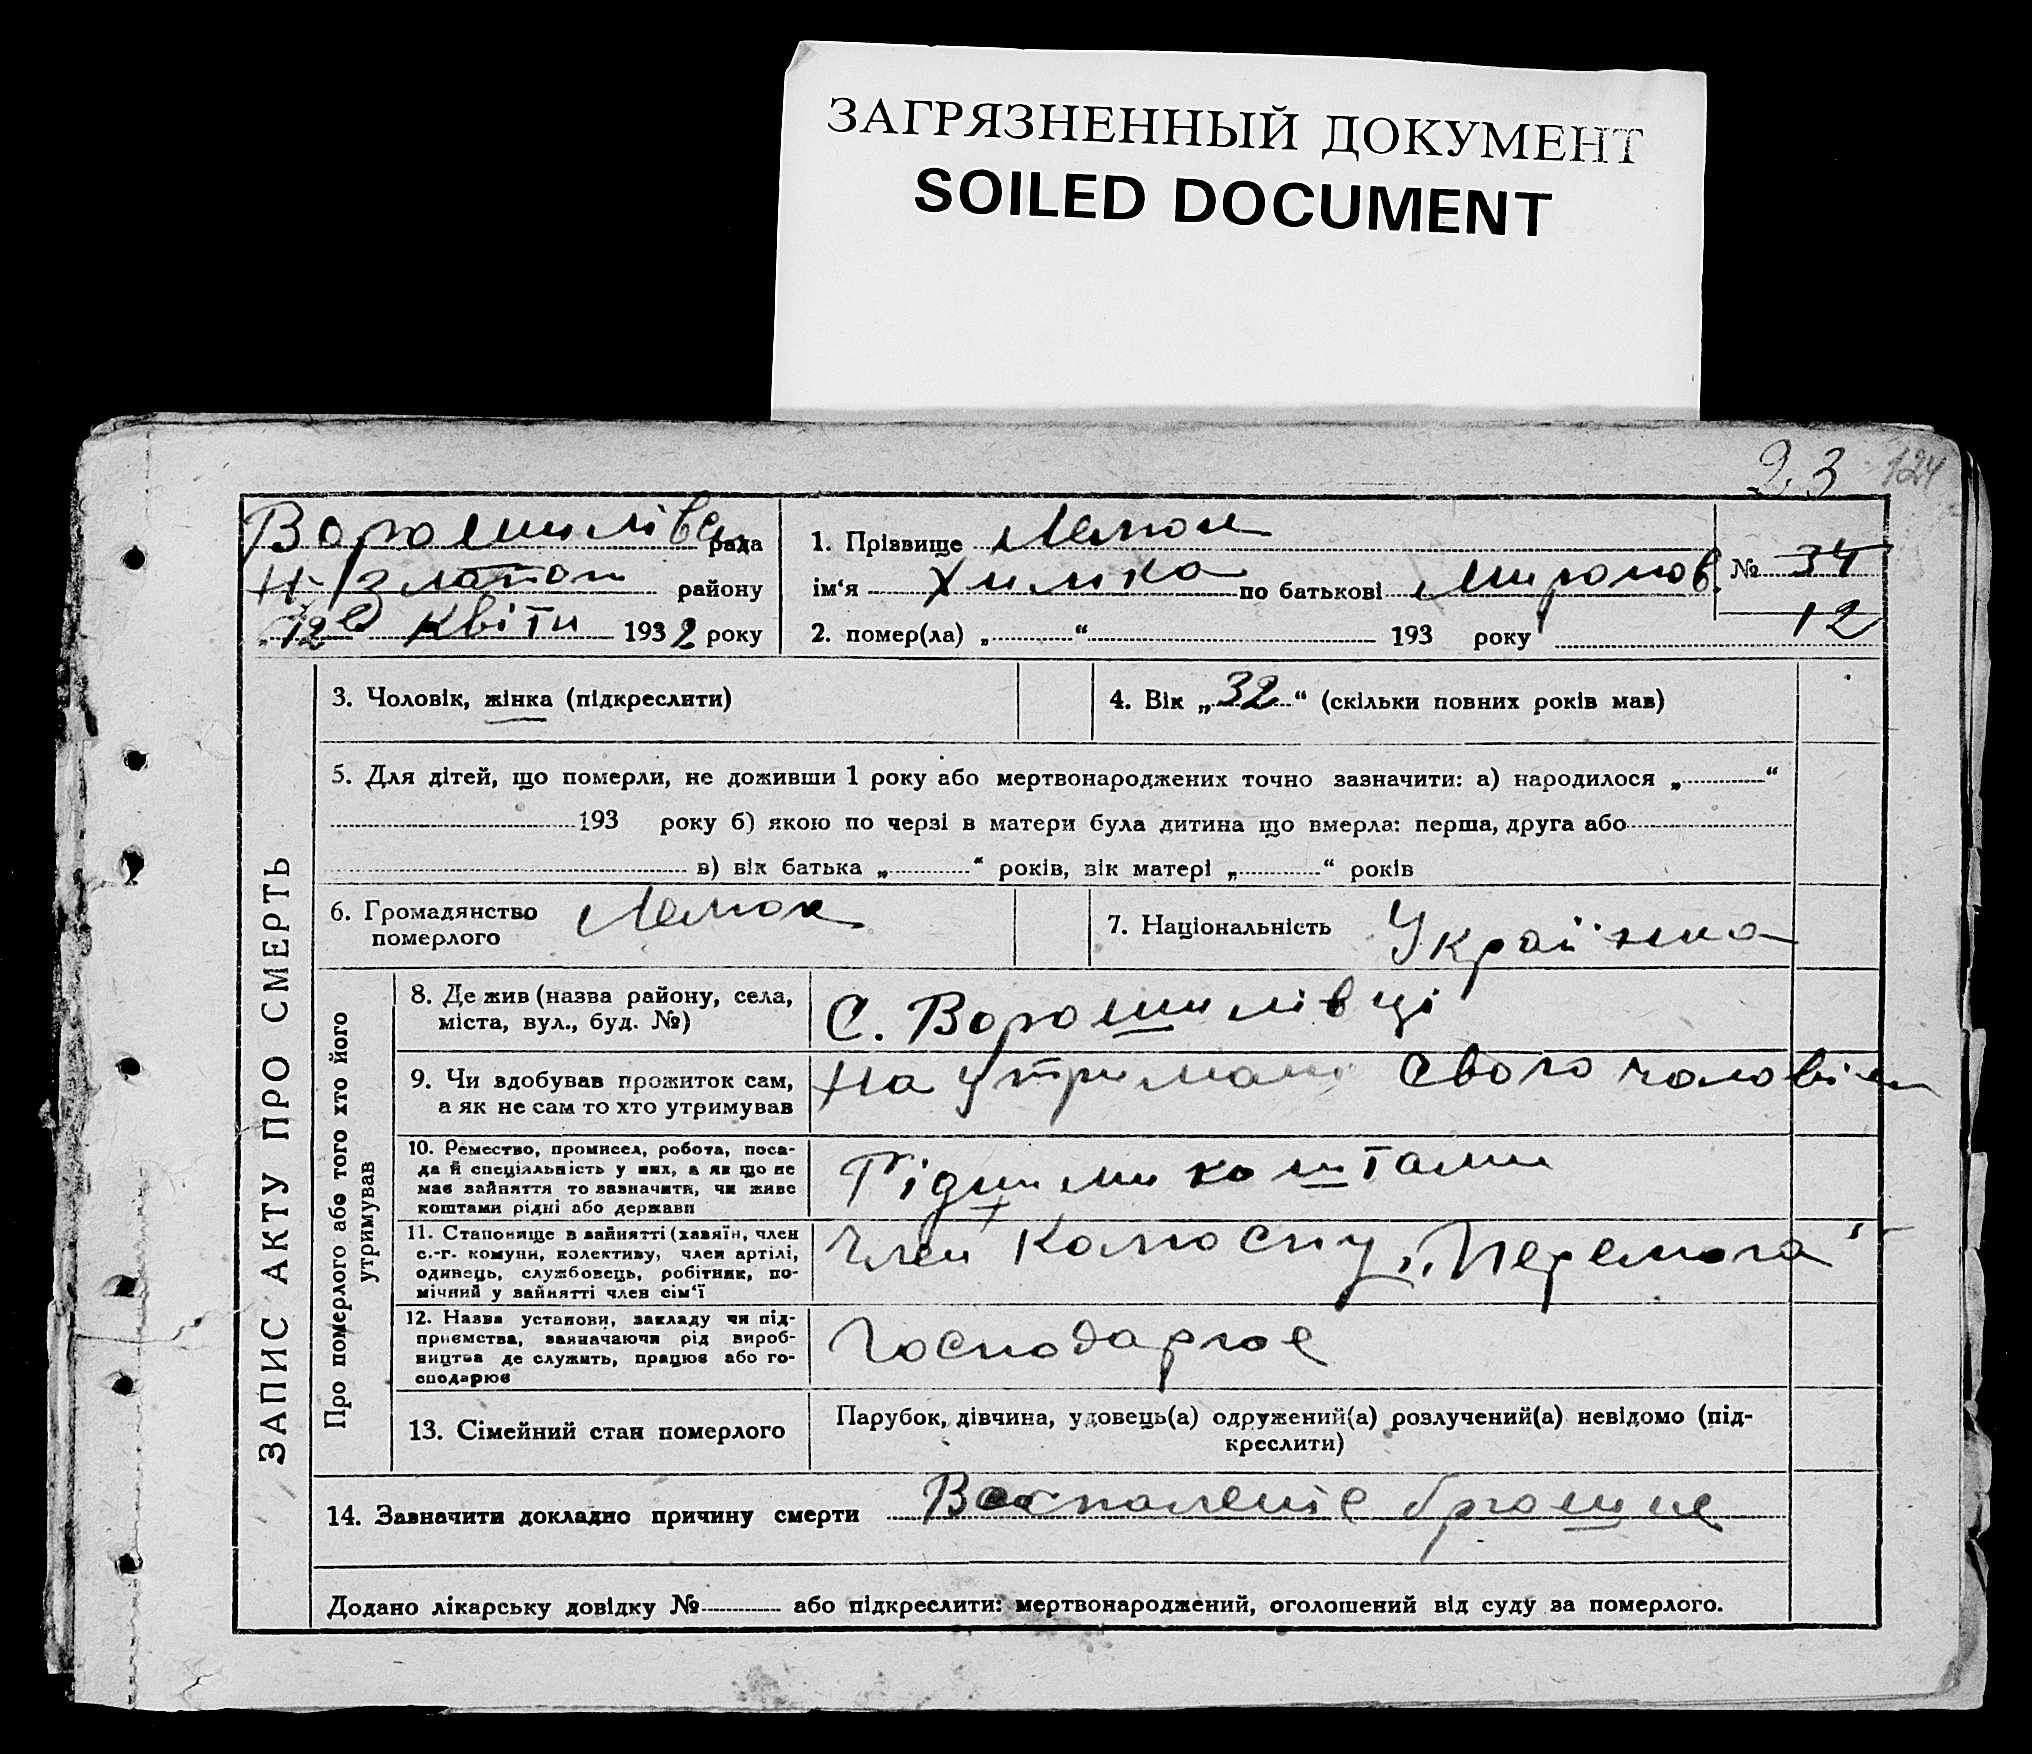 ЗАГРЯЗНЕННЫЙ ДОКУМЕНТ
SOILED DOCUMENT
23 124
Ворошилівс рада
району
12 Квітн 1932 року
1. Прізвище
ім‘я Химка по батькові Миронов.
№ 34
12
2. помер(ла) „ “ 193 року
ЗАПИС АКТУ ПРО СМЕРТЬ
3. Чоловік, жінка (підкреслити)
4. Вік „32“ (скільки повних років мав)
5. Для дітей, що померли, не доживши 1 року або мертвонароджених точно зазначити: а) народилося „ “
193 року б) якою по черзі в матери була дитина що вмерла: перша, друга або
в) вік батька „ “ років, вік матері „ “ років
6. Громадянство
померлого
7. Національність Українка
Про померлого або того хто його
утримував
8. Де жив (назва району, села,
міста, вул., буд. №)
С. Ворошилівці
9. Чи вдобував прожиток сам,
а як не сам то хто утримував
На утримані свого чоловіка
10. Ремество, промисел, робота, поса-
да й спеціяльність у них, а як що не
має зайняття то зазначити, чи живе
коштами рідні або держави
Рідними коштами
11. Становище в зайнятті (хазяїн, член
с.-г. комуни, колективу, член артілі,
одинець, службовець, робітник, по-
мічний у зайнятті член сім‘ї
Член Колгоспу „Перемога“
12. Назва установи, закладу чи під-
приємства, зазначаючи рід вироб-
ництва де служить, працює або го-
сподарює
Господарює
13. Сімейний стан померлого
Парубок, дівчина, удовець(а) одружений(а) розлучений(а) невідомо (під-
креслити)
14. Зазначити докладно причину смерти Воспаленіє брюшне
Додано лікарську довідку № або підкреслити: мертвонароджений, оголошений від суду за померлого.